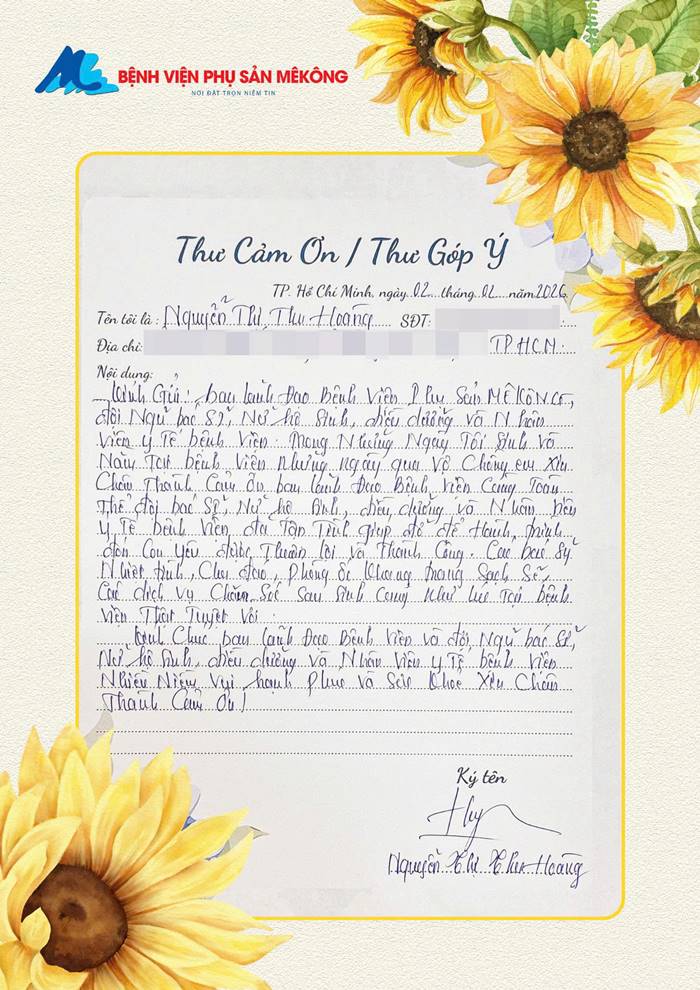 BỆNH VIỆN PHỤ SẢN MÊKÔNG
NƠI ĐẶT TRỌN NIỀM TIN
Thư Cảm Ơn / Thư Góp Ý
TP. Hồ Chí Minh, ngày 02 tháng 02 năm 2026
Tên tôi là : Nguyễn Thị Thu Hoàng SĐT:
Địa chỉ: TP HCM.
Nội dung:
Kính Gửi: ban Lãnh Đạo Bệnh Viện Phụ Sản MÊ KÔNG,
đội Ngũ bác Sĩ, Nữ hộ Sinh, điều dưỡng và Nhân
Viên y Tế bệnh Viện. Trong Những Ngày Tôi Sinh Và
Nằm Tại bệnh Viện những ngày qua Vợ Chồng em Xin
Chân Thành Cảm ơn ban Lãnh Đạo Bệnh Viện Cùng Toàn
Thể đội bác Sĩ, Nữ hộ Sinh, điều dưỡng và Nhân Viên
y Tế bệnh Viện đã Tận Tình giúp đỡ để Hành trình
đón Con yêu được Thuận lợi và Thành Công. Các bác Sỹ
Nhiệt tình, Chu đáo, Phòng ốc Khang trang Sạch Sẽ,
Các dịch Vụ Chăm Sóc Sau Sinh Cũng Như lúc Tại bệnh
Viện Thật Tuyệt Vời.
Kính Chúc ban Lãnh Đạo Bệnh Viện và đội Ngũ bác Sĩ,
Nữ hộ Sinh, điều dưỡng và Nhân Viên y Tế bệnh Viện
Nhiều Niềm Vui, hạnh Phúc Và Sức Khỏe Xin Chân
Thành Cảm Ơn!
Ký tên
Nguyễn Thị Thu Hoàng